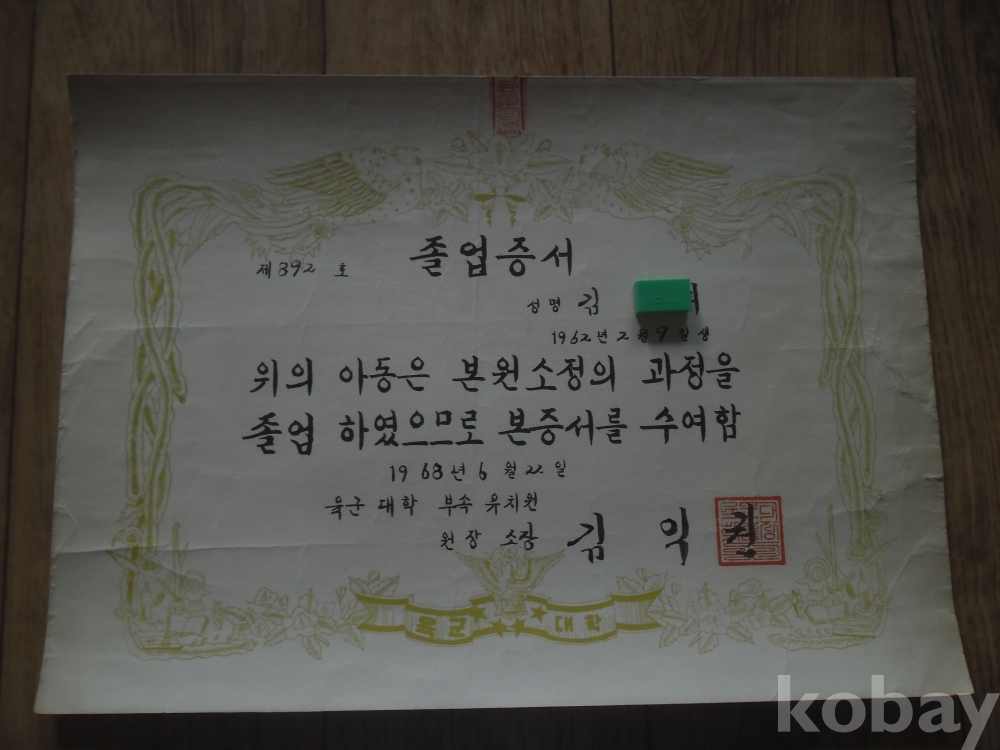 졸업증서
제392호
성명 김
1962년 2월 9일생
위의 아동은 본원소정의 과정을
졸업 하였으므로 본증서를 수여함
1968년 6월 22일
육군 대학 부속 유치원
원장 소장 김익권
육군 대학
kobay